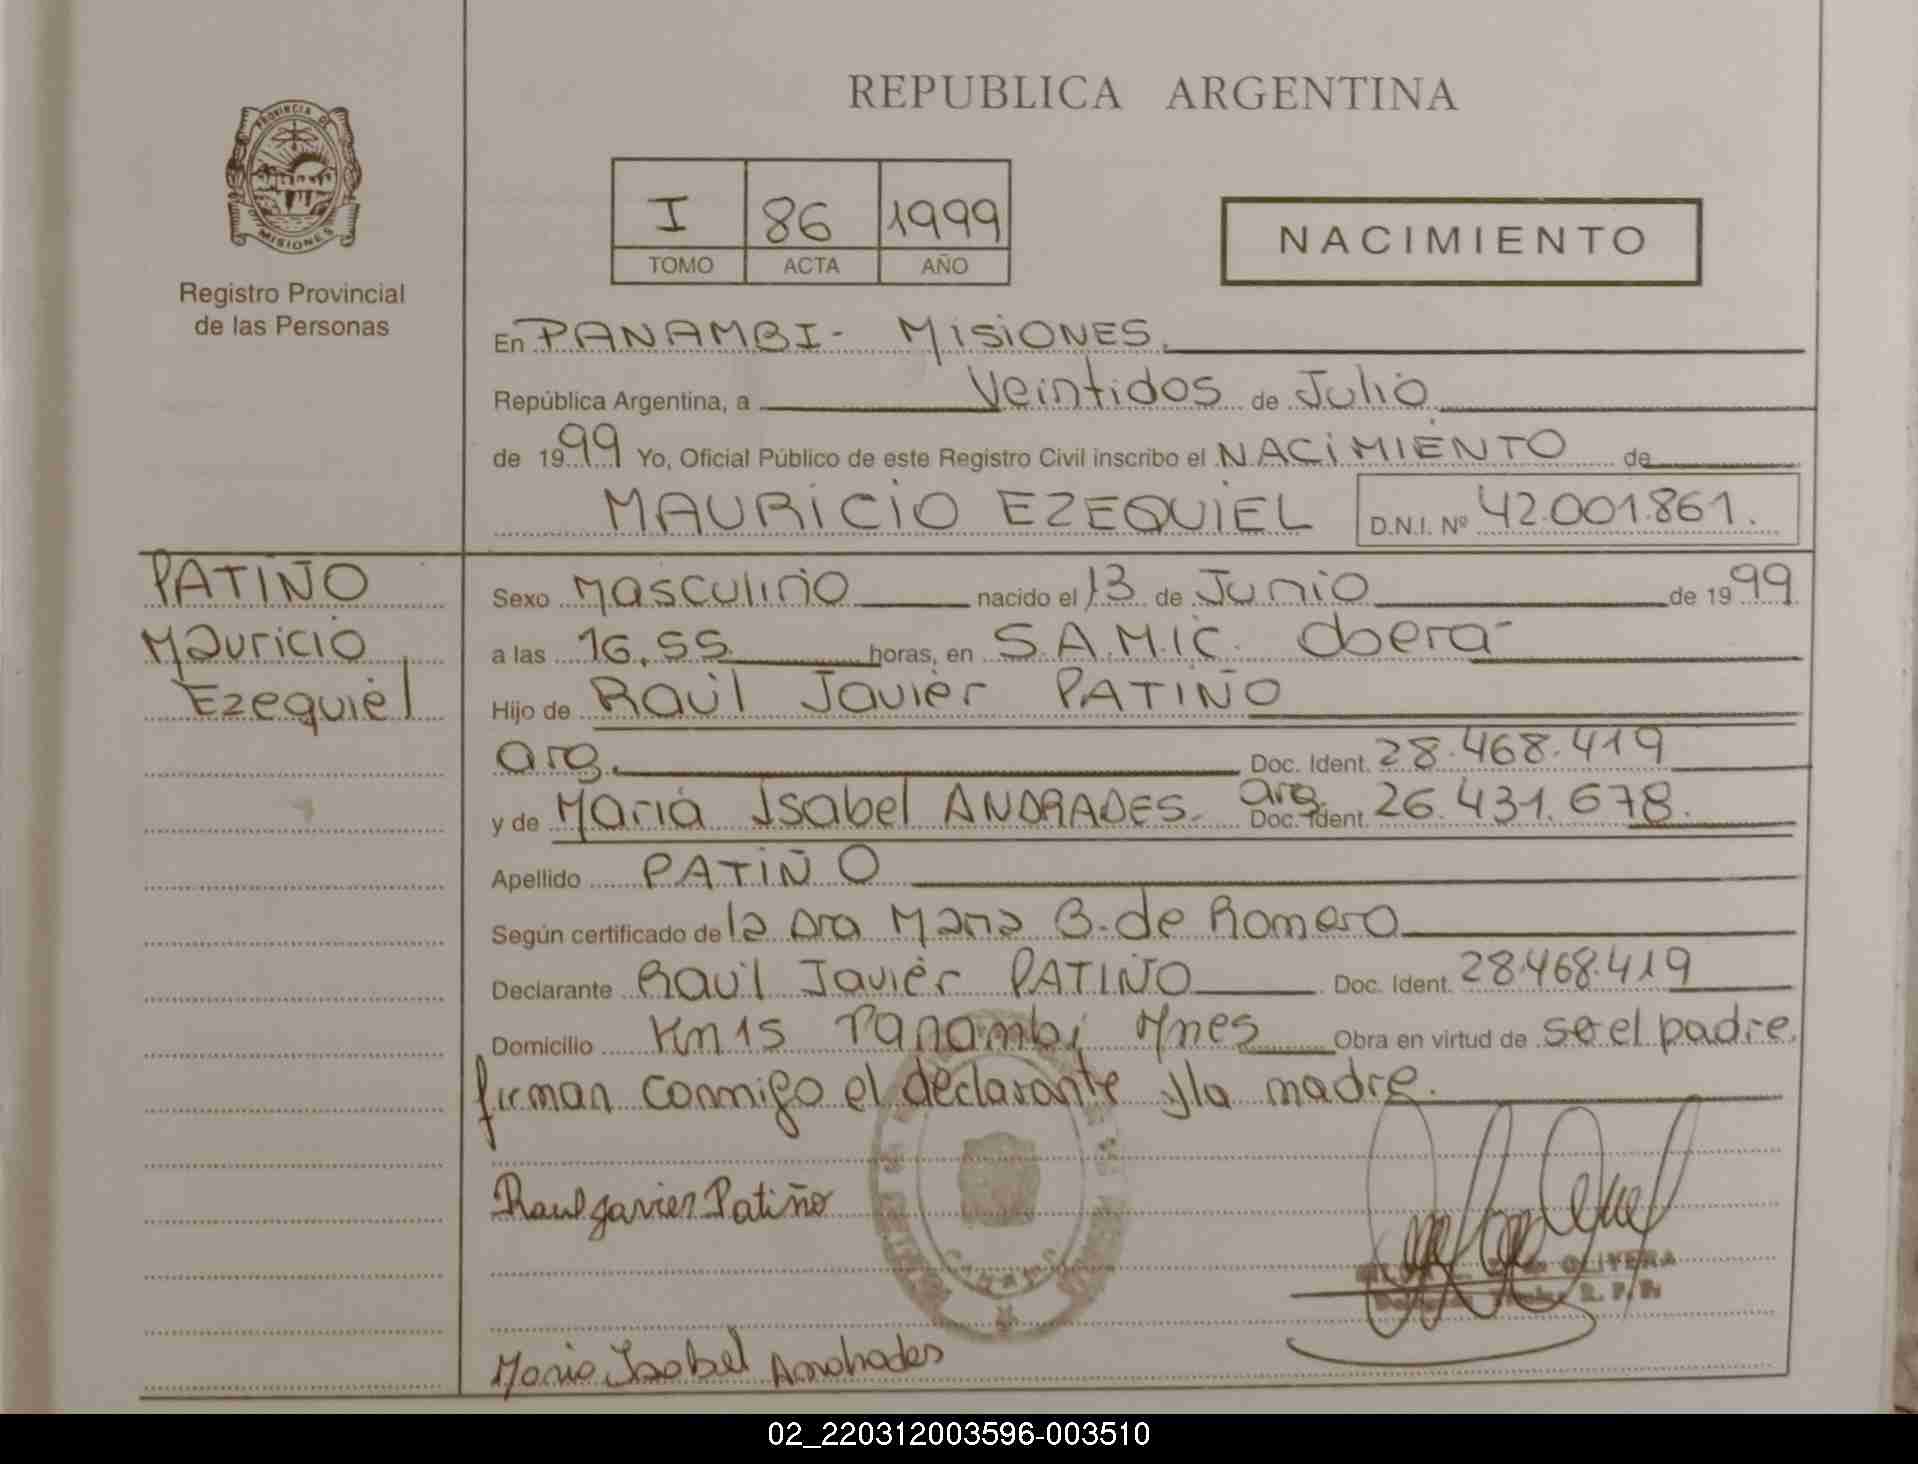 REPUBLICA ARGENTINA
PROVINCIA DE
MISIONES
Registro Provincial
de las Personas
I 86 1999
TOMO ACTA AÑO
NACIMIENTO
En PANAMBI- MISIONES.
República Argentina, a Veintidos de Julio
de 1999 Yo, Oficial Público de este Registro Civil inscribo el NACIMIENTO de
MAURICIO EZEQUIEL D.N.I. Nº 42.001.861.
PATIÑO
Mauricio
Ezequiel
Sexo Masculino nacido el 13 de Junio de 1999
a las 16,55 horas, en S.A.M.I.C. Oberá
Hijo de Raúl Javier PATIÑO
arg. Doc. Ident. 28.468.419
y de María Isabel ANDRADES. arg. Doc. Ident. 26.431.678.
Apellido PATIÑO
Según certificado de la Dra Maria B. de Romero
Declarante Raúl Javier PATIÑO Doc. Ident. 28.468.419
Domicilio Km 15 Panambi Mnes Obra en virtud de se el padre,
firman conmigo el declarante y la madre.
Raul Javier Patiño
OLIVERA
R. P. P.
Maria Isabel Andrades
02_220312003596-003510